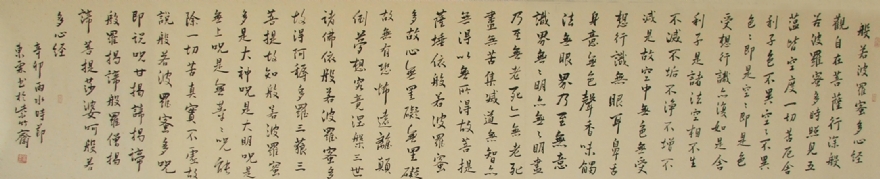 般若波羅蜜多心经
觀自在菩薩行深般
若波羅蜜多時照見五
蕴皆空度一切苦厄舍
利子色不異空〻不異
色〻即是空〻即是色
受想行識亦復如是舍
利子是諸法空相不生
不滅不垢不淨不增不
減是故空中無色無受
想行識無眼耳鼻舌
身意無色聲香味觸
法無眼界乃至無意
識界無〻明亦無〻明盡
乃至無老死亦無老死
盡無苦集滅道無智亦
無得以無所得故菩提
薩埵依般若波羅蜜
多故心無罣礙無罣礙
故無有恐怖遠離顛
倒夢想究竟涅槃三世
諸佛依般若波羅蜜多
故得阿耨多羅三藐三
菩提故知般若波羅蜜
多是大神呪是大明呪是
無上呪是無等〻呪能
除一切苦真實不虛故
說般若波羅蜜多呪
即说呪曰揭諦揭諦
般羅揭諦般羅僧揭
諦菩提莎婆呵般若
多心经
辛卯雨水時節
東雲书於